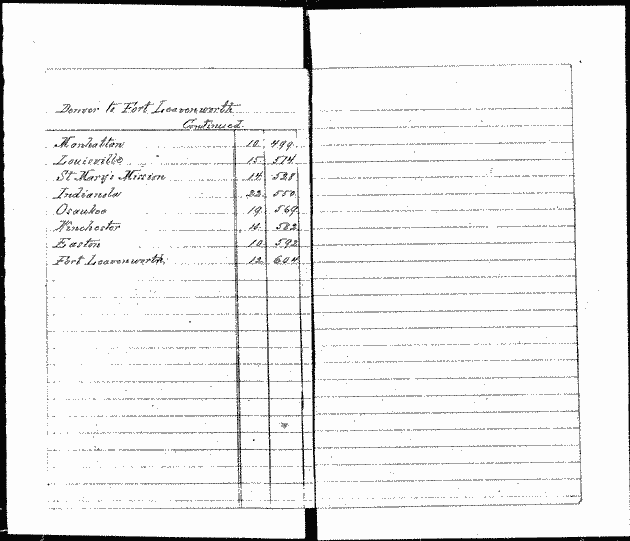 Denver to Fort Leavenworth
Continued.
Manhattan 10. 499.
Louisville 15. 514
St Mary's Mission 14. 528
Indianola 22. 550.
Osaukee 19. 569.
Winchester 582
Easton 10. 592
Fort Leavenworth. 12 604